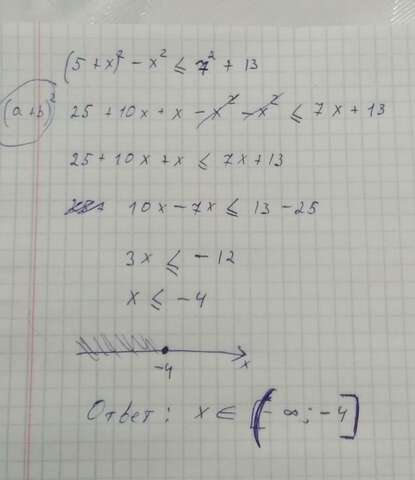 (5 + x)² - x² ≤ 7² + 13
(a+b)² 25 + 10x + x - x² - x² ≤ 7x + 13
25 + 10x + x ≤ 7x + 13
10x - 7x ≤ 13 - 25
3x ≤ -12
x ≤ -4
-4 x
Ответ: x ∈ (-∞; -4]